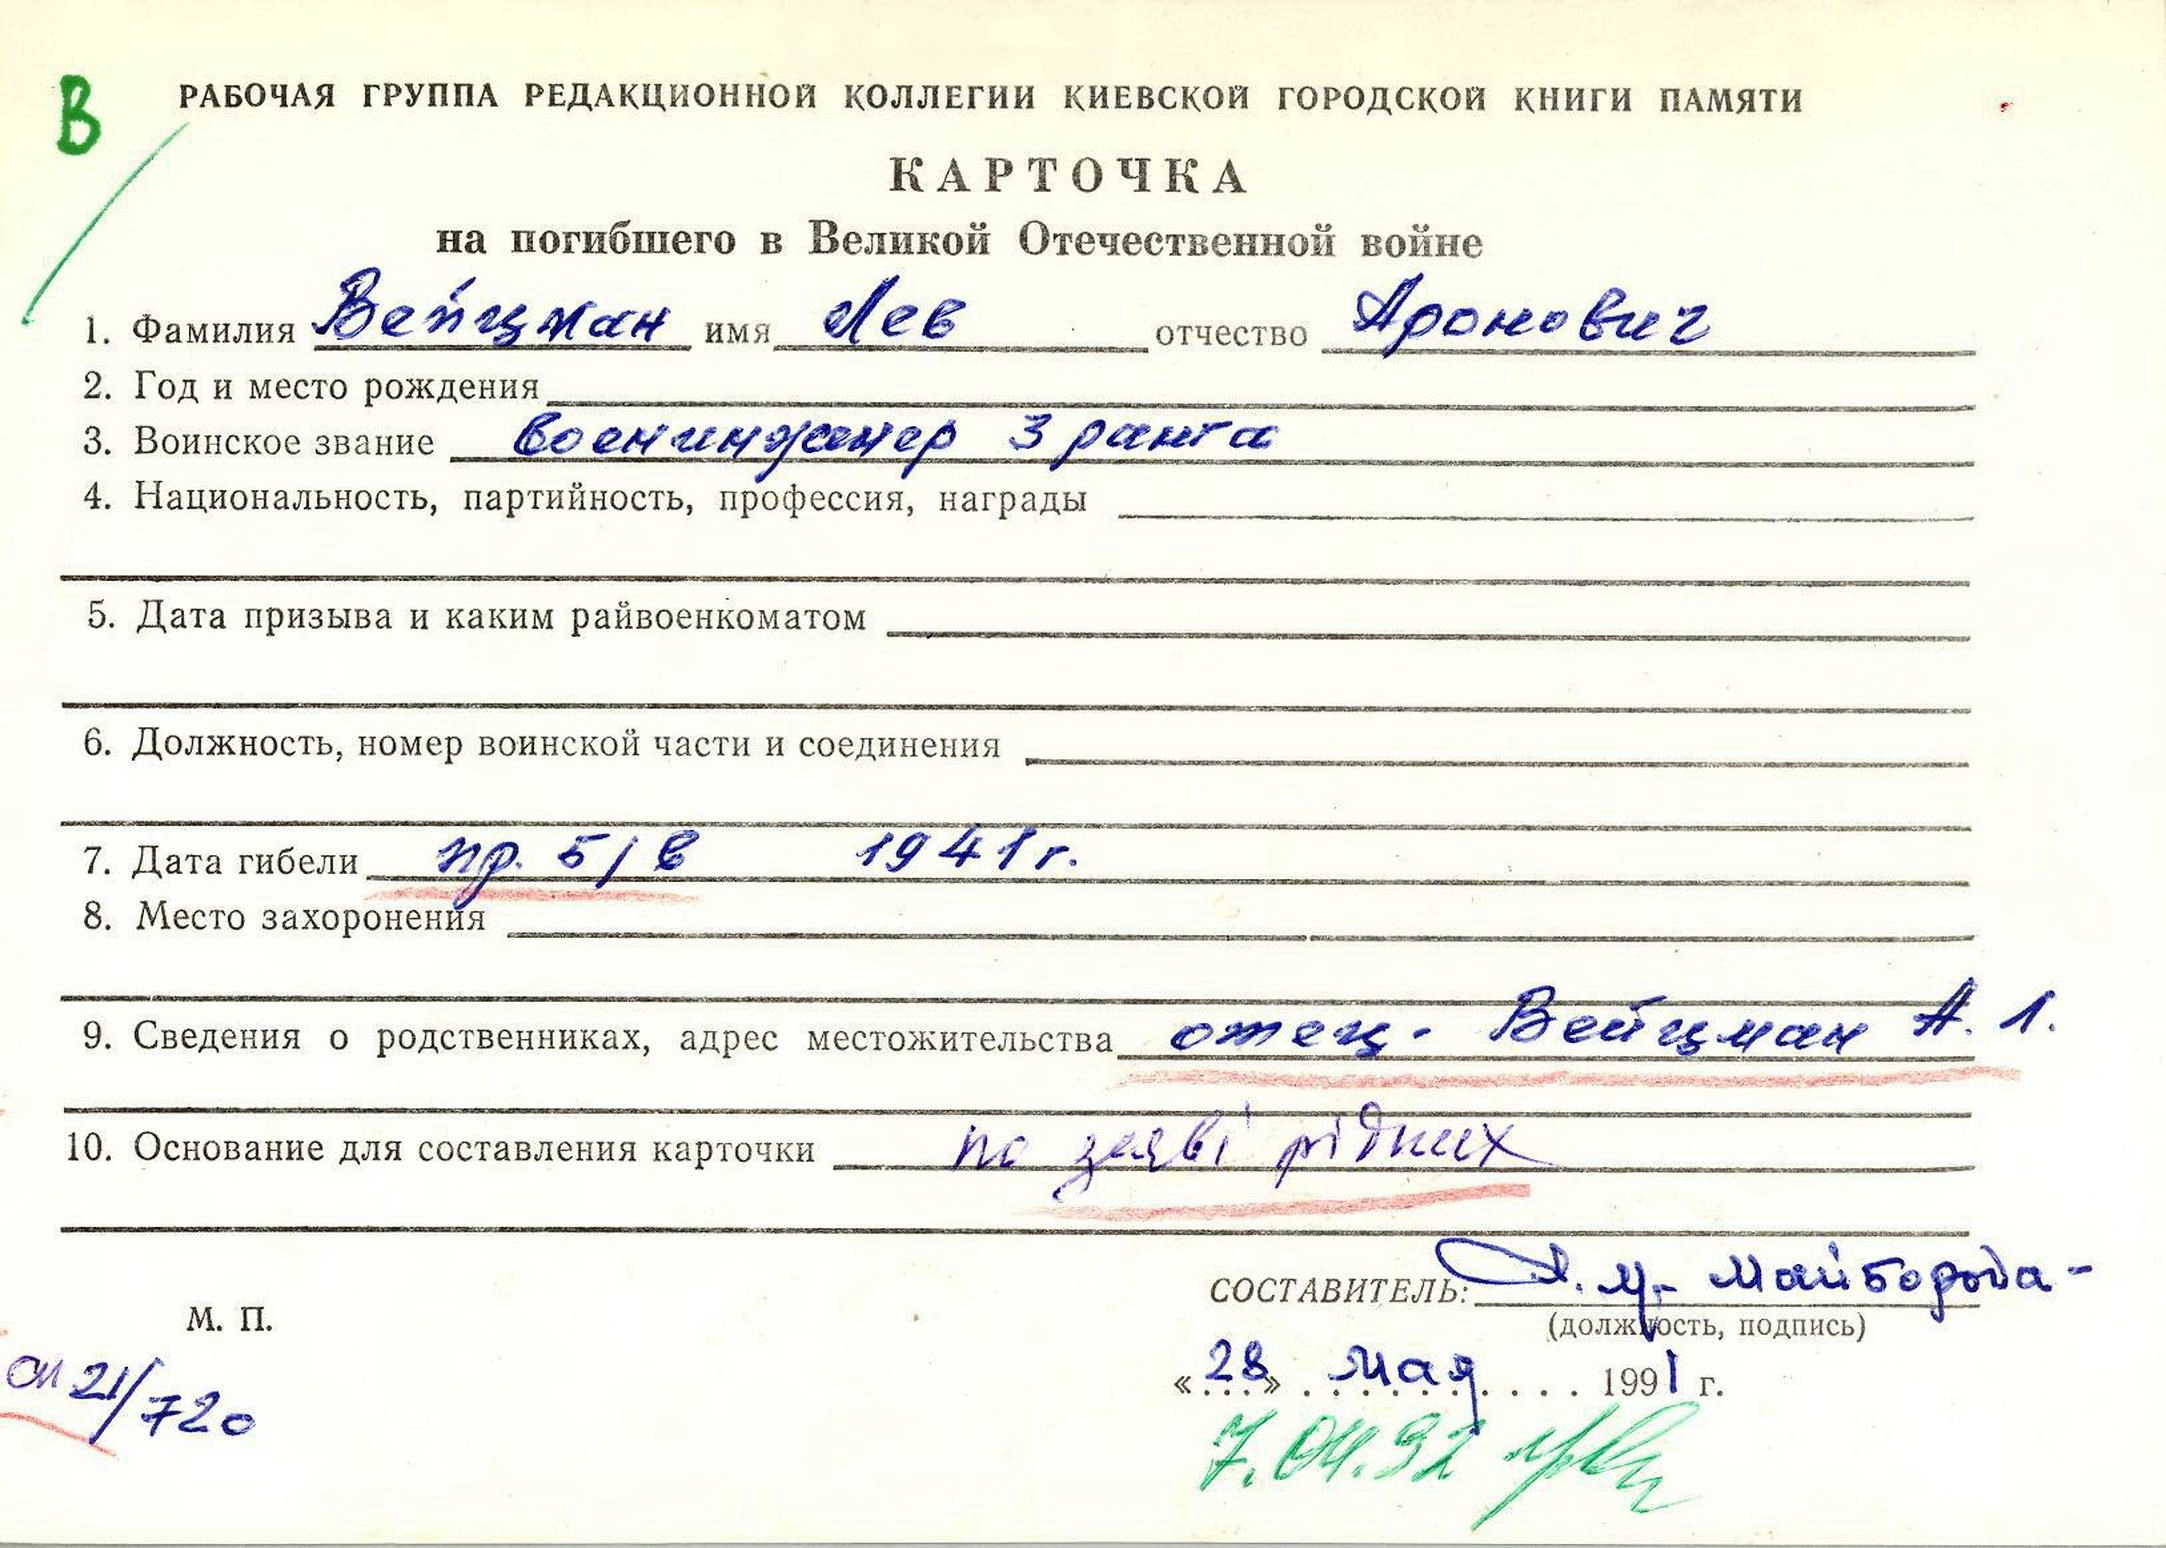 В
РАБОЧАЯ ГРУППА РЕДАКЦИОННОЙ КОЛЛЕГИИ КИЕВСКОЙ ГОРОДСКОЙ КНИГИ ПАМЯТИ
КАРТОЧКА
на погибшего в Великой Отечественной войне
1. Фамилия Вейцман имя Лев отчество Аронович
2. Год и место рождения
3. Воинское звание военинженер 3 ранга
4. Национальность, партийность, профессия, награды
5. Дата призыва и каким райвоенкоматом
6. Должность, номер воинской части и соединения
7. Дата гибели пр. б/в 1941 г.
8. Место захоронения
9. Сведения о родственниках, адрес местожительства отец - Вейцман А. Л.
10. Основание для составления карточки по заяві рідних
СОСТАВИТЕЛЬ: Майборода -
М. П.
(должность, подпись)
« 28 » мая 1991 г.
оп 21/720
7.04.92